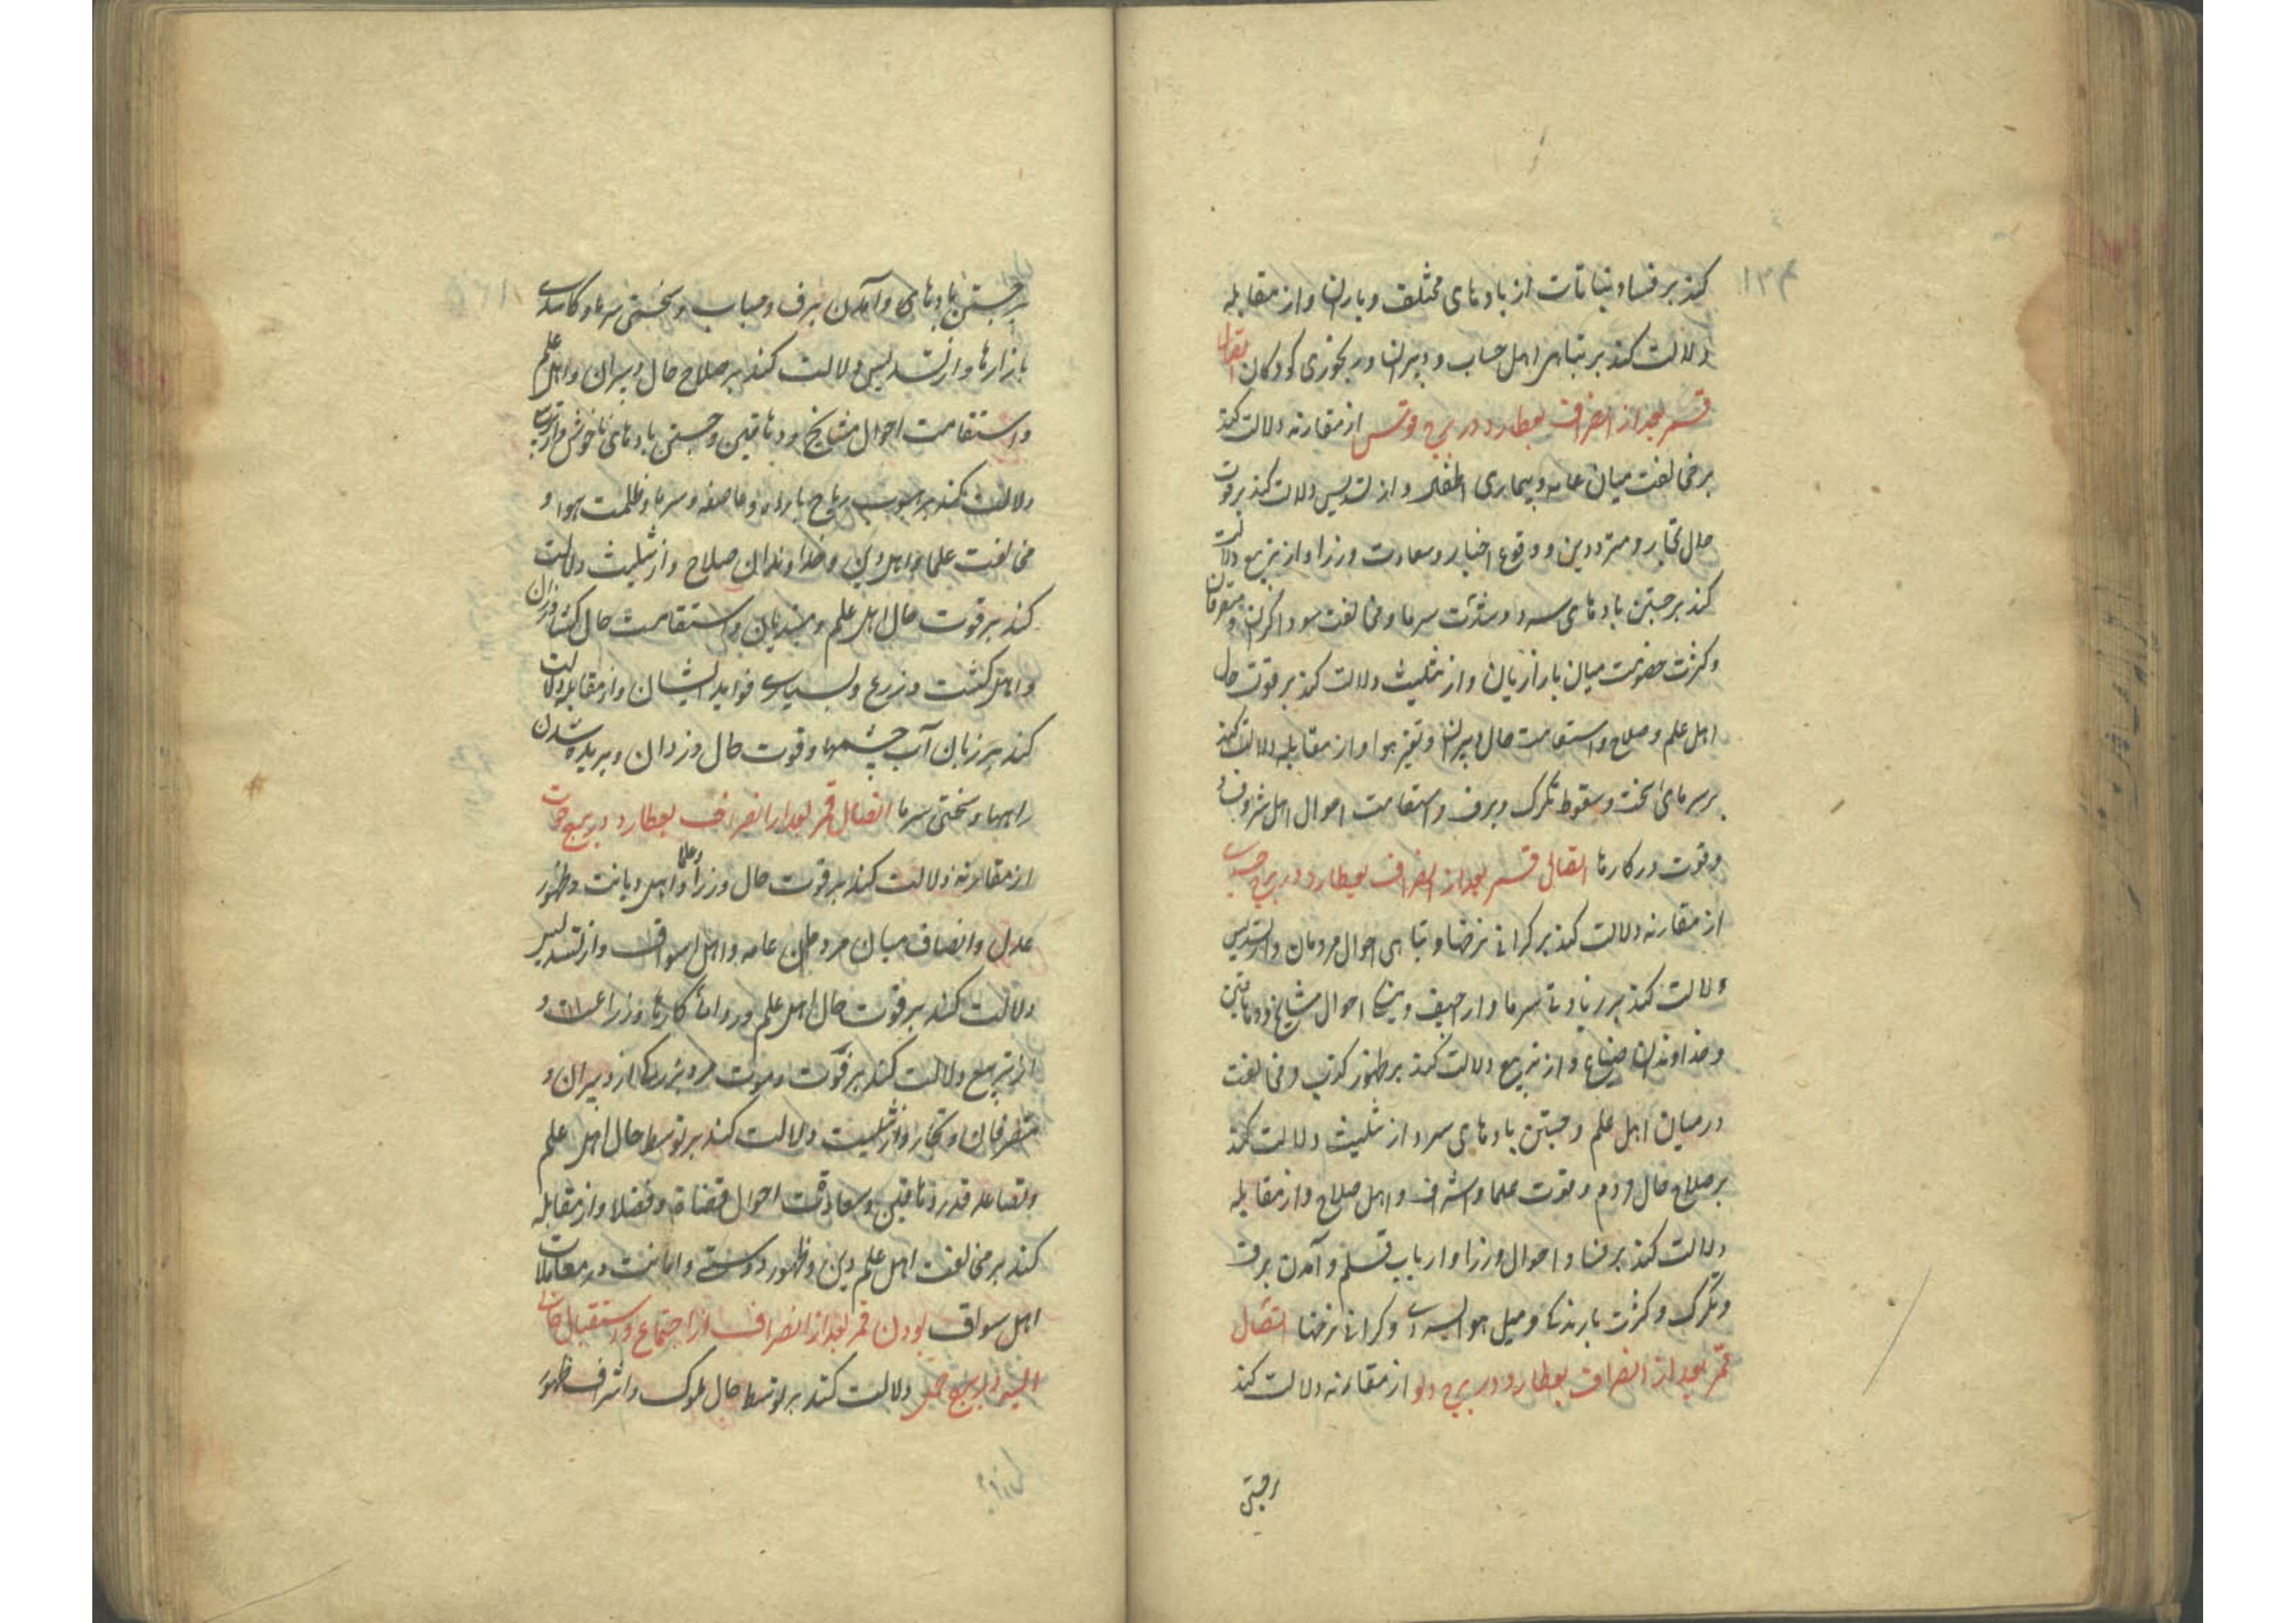 کند بر فساد نباتات از بادهای مختلف و باران و از مقابله
دلالت کند بر تباهی اهل حساب و دبیران و رنجوری کودکان اتصال
قمر بعد از انصراف بعطارد در برج قوس از مقارنه دلالت کند
بر مخالفت میان عامه و بیماری اطفال و از تسدیس دلالت کند بر قوت
حال تجار و مترددین و وقوع اخبار و سعادت وزرا و از تربیع دلالت
کند بر جستن بادهای سرد و شدت سرما و مخالفت سوداگران و متصرفان
و کثرت خصومت میان بازاریان و از تثلیث دلالت کند بر قوت حال
اهل علم و صلاح و استقامت حال دبیران و تغیر هوا و از مقابله دلالت کند
بر سرمای سخت و سقوط تگرک و برف و استقامت احوال اهل شروف و
و قوت در کارها اتصال قمر بعد از انصراف بعطارد در برج جدی
از مقارنه دلالت کند بر کرانی نرخها و تباهی احوال مردمان و از تسدیس
دلالت کند بر زیادتی سرما و اراجیف و احوال مشایخ و دهاقین
و خداوندان ضیاع و از تربیع دلالت کند بر ظهور کذب و مخالفت
در میان اهل علم و جستن بادهای سرد و از تثلیث دلالت کند
بر صلاح حال مردم و قوت علما و اشراف و اهل صلاح و از مقابله
دلالت کند بر فساد احوال وزرا و ارباب قلم و آمدن برف
و تگرک و کثرت بارندگی و میل هوا بسردی و کرانی نرخها اتصال
قمر بعد از انصراف بعطارد در برج دلو از مقارنه دلالت کند
بر جستن
بر جستن بادهای و آمدن برف و ضباب و سختی سرما و کاسدی
بازارها و از تسدیس دلالت کند بر صلاح حال دبیران و اهل علم
و استقامت احوال مشایخ و دهاقین و جستن بادهای ناخوش و از تربیع
دلالت کند بر هبوب ریاح بارده و عاصفه و سرما و ظلمت هوا و
مخالفت علما و اهل دین و خداوندان صلاح و از تثلیث دلالت
کند بر قوت حال اهل علم و متدینان و استقامت حال کشاورزان
و اهل کشت و زرع و بسیاری فواید ایشان و از مقابله دلالت
کند بر زیان آب چشمها و قوت حال دزدان و بریده شدن
راهها و سختی سرما اتصال قمر بعد از انصراف بعطارد در برج حوت
از مقارنه دلالت کند بر قوت حال وزرا و علما و اهل دیانت و ظهور
عدل و انصاف میان مردمان عامه و اهل اسواق و از تسدیس
دلالت کند بر قوت حال اهل علم و روائی کارها و زراعات و
از تربیع دلالت کند بر قوت و موت مرد بزرک از دبیران و
متصرفان و تجار و از تثلیث دلالت کند بر توسط حال اهل علم
و تصاعد قدر دهاقین و سعادت احوال قضاة و فضلا و از مقابله
کند بر مخالفت اهل علم دین و ظهور دوستی و امانت در معاملات
اهل سواق بودن قمر بعد از انصراف از اجتماع و استقبال
السیر در برج حمل دلالت کند بر توسط حال ملوک و اشراف ظهور